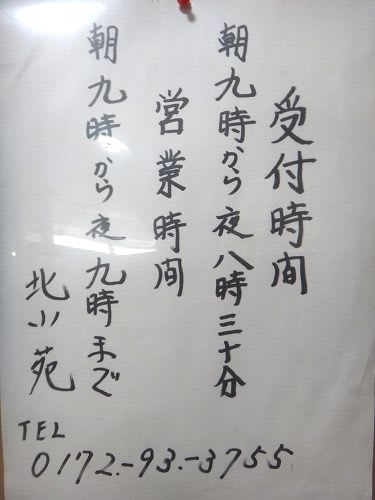 受付時間
朝九時から夜八時三十分
営業時間
朝九時から夜九時まで
北小苑
TEL
0172.-93.-3755